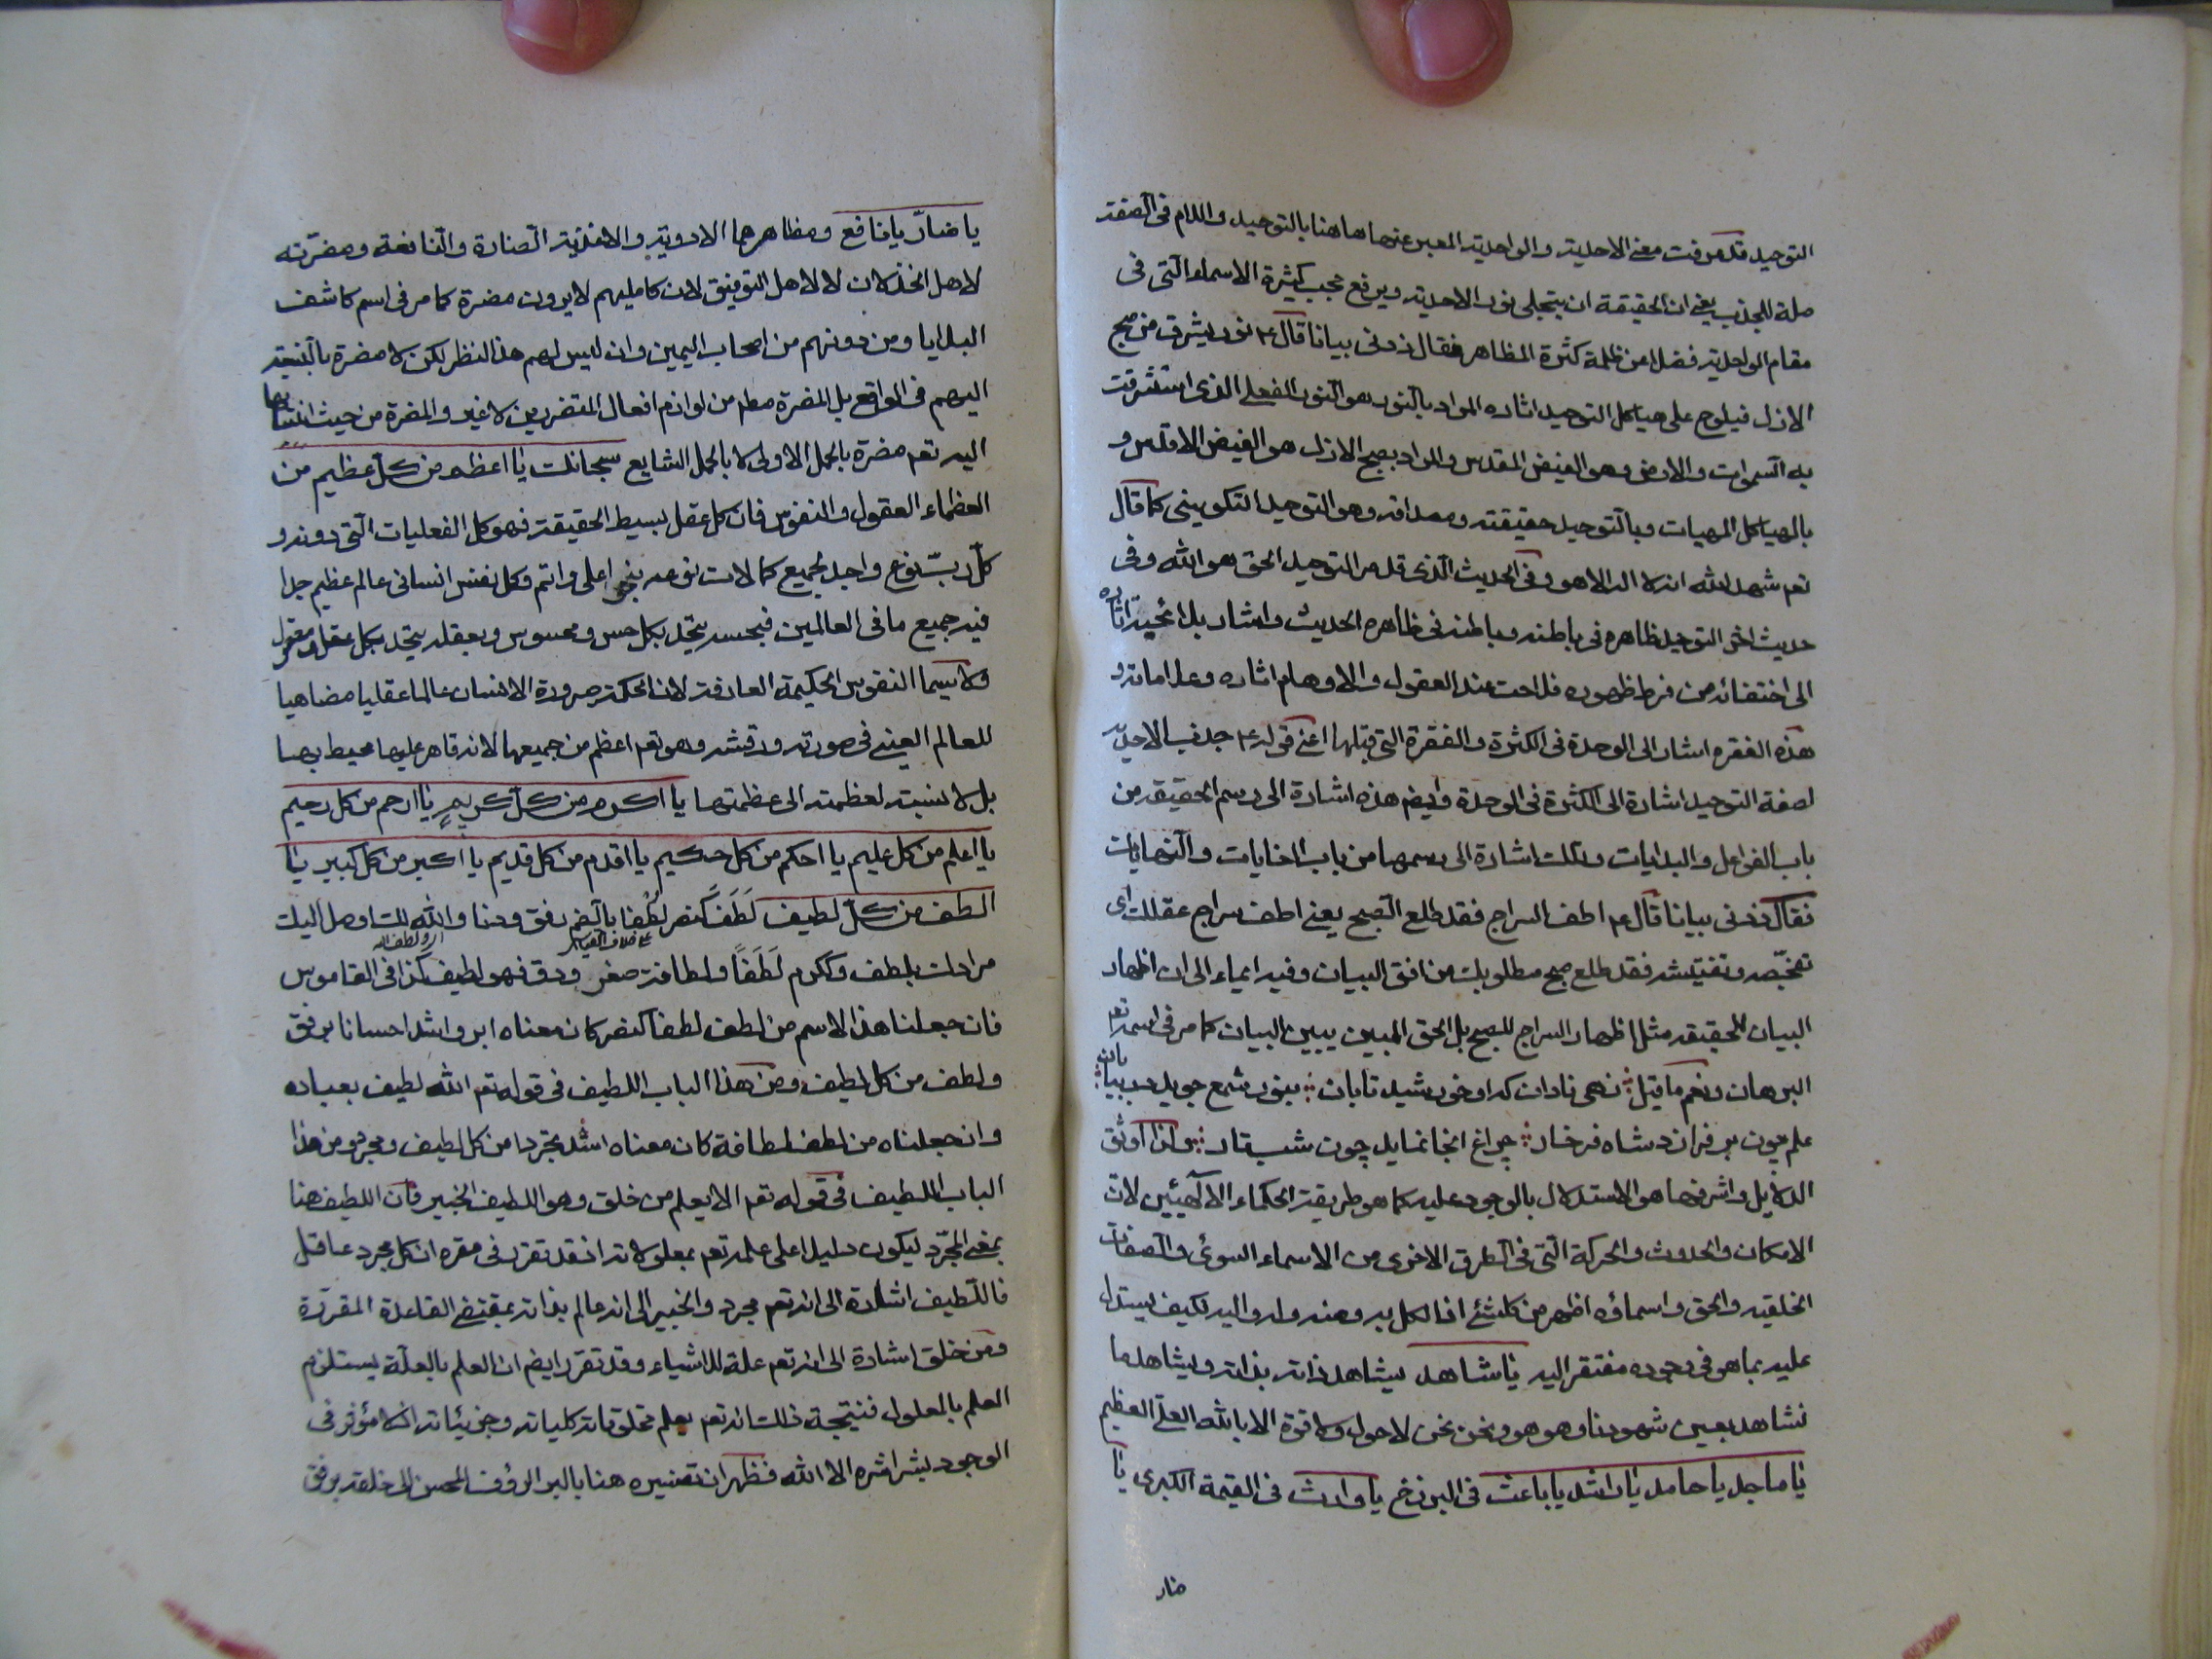 التوحيد قد عرفت معنى الاحدية والواحدية المعبر عنها هاهنا بالتوحيد واللام فى الصفة
صلة للجذب يعنى ان الحقيقة ان يتجلى نور الاحدية ويرفع حجب كثرة الاسماء التى فى
مقام الواحدية فضلا عن ظلمة كثرة المظاهر فقال زدنى بيانا قال ع نور يشرق من صبح
الازل فيلوح على هياكل التوحيد اثاره المراد بالنور هو النور الفعلى الذى استشرقت
به السموات والارض وهو الفيض المقدس والمراد بصبح الازل هو الفيض الاقدس و
بالهياكل المهيات وبالتوحيد حقيقته ومصداقه وهو التوحيد التكوينى كما قال
تعم شهد الله انه لا اله الا هو وفى الحديث الذى قد مر التوحيد الحق هو الله وفى
حديث اخر التوحيد ظاهره فى باطنه وباطنه فى ظاهره الحديث واشار بلائحية اثاره
الى اختفائه من فرط ظهوره فلاحت عند العقول والاوهام اثاره وعلاماته و
هذه الفقره اشار الى الوحدة فى الكثرة والفقرة التى قبلها اعنى قوله ع جذب الاحدية
لصفة التوحيد اشارة الى الكثرة فى الوحدة وايضم هذه اشارة الى رسم الحقيقة من
باب الفواعل والبدايات وتلك اشارة الى رسمها من باب الغايات والنهايات
فقال زدنى بيانا قال ع اطف السراج فقد طلع الصبح يعنى اطف سراج عقلك اى
تفحّصه وتفتيشه فقد طلع صبح مطلوبك من افق البيان وفيه ايماء الى ان اظهار
البيان للحقيقة مثل اظهار السراج للصبح بل الحق المبين يبين البيان كما مر فى اسمه تعم
البرهان ونعم ما قيل زهى نادان كه او خورشيد تابان بنور شمع جويد در بيابان
علم چون بر فرازد شاه فرخار چراغ انجا نمايد چون شب تار ولذا اوثق
الدلايل واشرفها هو الاستدلال بالوجود عليه كما هو طريقة الحكماء الالهيّين لان
الامكان والحدوث والحركة التى فى الطرق الاخرى من الاسماء السوئى والصفات
الخلقية والحق واسماؤه اظهر من كلشئ اذ الكل به ومنه وله واليه فكيف يستدل
عليه بما هو فى وجوده مفتقر اليه يا شاهد يشاهد ذاته بذاته ويشاهد ما
نشاهد بعين شهودنا وهو هو ونحن نحن لا حول ولا قوة الا بالله العلى العظيم
يا ماجد يا حامد يا راشد يا باعث فى البرزخ يا وارث فى القيمة الكبرى يا
ضار
يا ضارّ يا نافع ومظاهرهما الادوية والاغذية الضارة والنافعة ومضرّته
لاهل الخذلان لا لاهل التوفيق لان كامليهم لا يرون مضرة كما مر فى اسم كاشف
البلايا ومن دونهم من اصحاب اليمين وان ليس لهم هذا النظر لكن لا مضرة بالنسبة
اليهم فى الواقع بل المضرة مطم من لوازم افعال المتضررين لا غير والمضرة من حيث انتسابها
اليه تعم مضرة بالحمل الاولى لا بالحمل الشايع سبحانك يا اعظم من كل عظيم من
العظماء العقول والنفوس فان كل عقل بسيط الحقيقة فهو كل الفعليات التى دونه و
كل ربّ نوع واجد لجميع كمالات نوعه بنحو اعلى واتم وكل نفس انسانى عالم عظيم جدا
فيه جميع ما فى العالمين فبحسه يتحد بكل حس ومحسوس وبعقله يتحد بكل عقل ومعقول
ولا سيما النفوس الحكيمة العارفة لان الحكمة صيرورة الانسان عالما عقليا مضاهيا
للعالم العينى فى صورته ورقشه وهو تعم اعظم من جميعها لانه قاهر عليها محيط بها
بل لا نسبة لعظمته الى عظمتها يا اكرم من كل كريم يا ارحم من كل رحيم
يا اعلم من كل عليم يا احكم من كل حكيم يا اقدم من كل قديم يا اكبر من كل كبير يا
الطف من كل لطيف لَطَفَ كنصر لُطْفا بالضم رفق ودنا والله لك اوصل اليك
على خلاف القياس
ارو لطف الله
مرادك بلطف وككرم لَطَفاً ولطافة صغر ودق فهو لطيف كذا فى القاموس
فان جعلنا هذا الاسم من لطف لطفا كنصر كان معناه ابر واشد احسانا برفق
ولطف من كل لطيف ومن هذا الباب اللطيف فى قوله تعم الله لطيف بعباده
وان جعلناه من لطف لطافة كان معناه اشد تجردا من كل لطيف ومجرد ومن هذا
الباب اللطيف فى قوله تعم الا يعلم من خلق وهو اللطيف الخبير فان اللطيف هنا
بمعنى المجرّد ليكون دليلا على علمه تعم بمعلولاته اذ قد تقرر فى مقره ان كل مجرد عاقل
فاللّطيف اشارة الى انه تعم مجرد والخبير الى انه عالم بذاته بمقتضى القاعدة المقررة
ومن خلق اشارة الى انه تعم علة للاشياء وقد تقرر ايضم ان العلم بالعلّة يستلزم
العلم بالمعلول فنتيجة ذلك انه تعم يعلم مخلوقاته كلياته وجزئياته اذ لا مؤثر فى
الوجود بشراشره الا الله فظهر ان تفسيره هنا بالبر الرؤف المحسن الى خلقه برفق